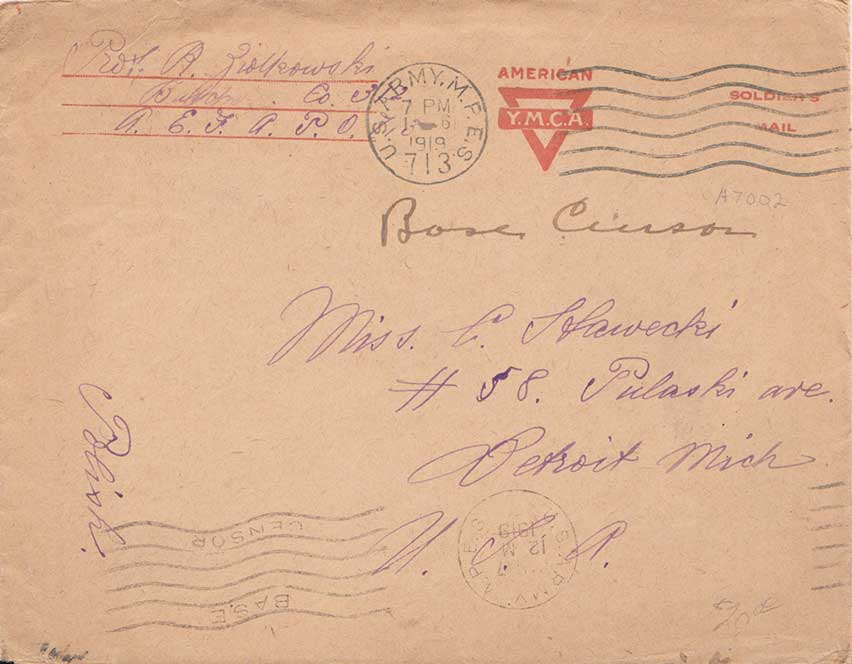 Pvt. A. Ziolkowski
Co.
A. E. F. A. P. O.
U.S. ARMY. M. P. E. S.
7 PM
1919
713
AMERICAN
Y.M.C.A.
SOLDIER'S
MAIL
A7002
Base Censor
Miss. C. Slawecki
# 58. Pulaski ave.
Detroit Mich
U. S. A.
Polish.
CENSOR
BASE
U. S. ARMY M. P. E. S.
12 M
1919